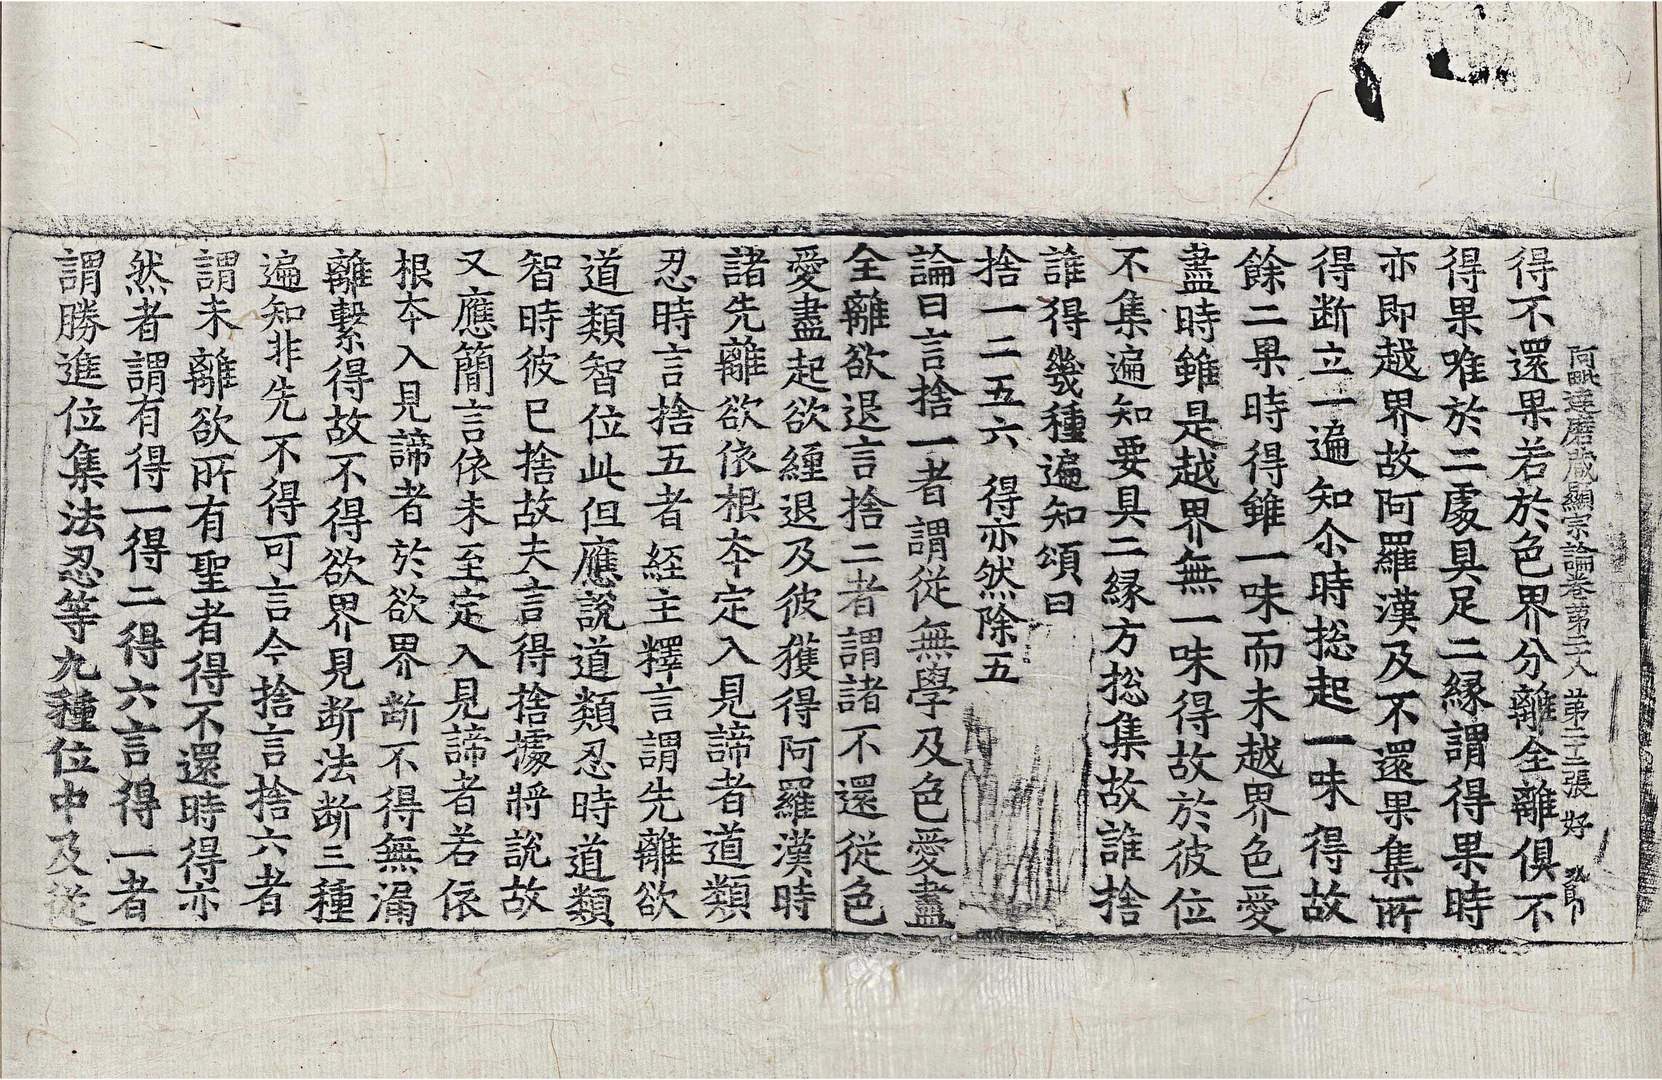 阿毗達磨藏顯宗論卷第二十八 第二十二張 好
得不還果若於色界分離全離俱不
得果唯於二處具足二緣謂得果時
亦即越界故阿羅漢及不還果集所
得断立一遍知尒時捴起一味得故
餘二果時得雖一味而未越界色愛
盡時雖是越界無一味得故於彼位
不集遍知要具二緣方捴集故誰捨
誰得幾種遍知頌曰
捨一二五六 得亦然除五
論曰言捨一者謂從無學及色愛盡
全離欲退言捨二者謂諸不還從色
愛盡起欲纏退及彼獲得阿羅漢時
諸先離欲依根夲定入見諦者道類
忍時言捨五者経主釋言謂先離欲
道類智位此但應說道類忍時道類
智時彼已捨故夫言得捨據將說故
又應簡言依未至定入見諦者若依
根夲入見諦者於欲界断不得無漏
離繫得故不得欲界見断法断三種
遍知非先不得可言今捨言捨六者
謂未離欲所有聖者得不還時得亦
然者謂有得一得二得六言得一者
謂勝進位集法忍等九種位中及從